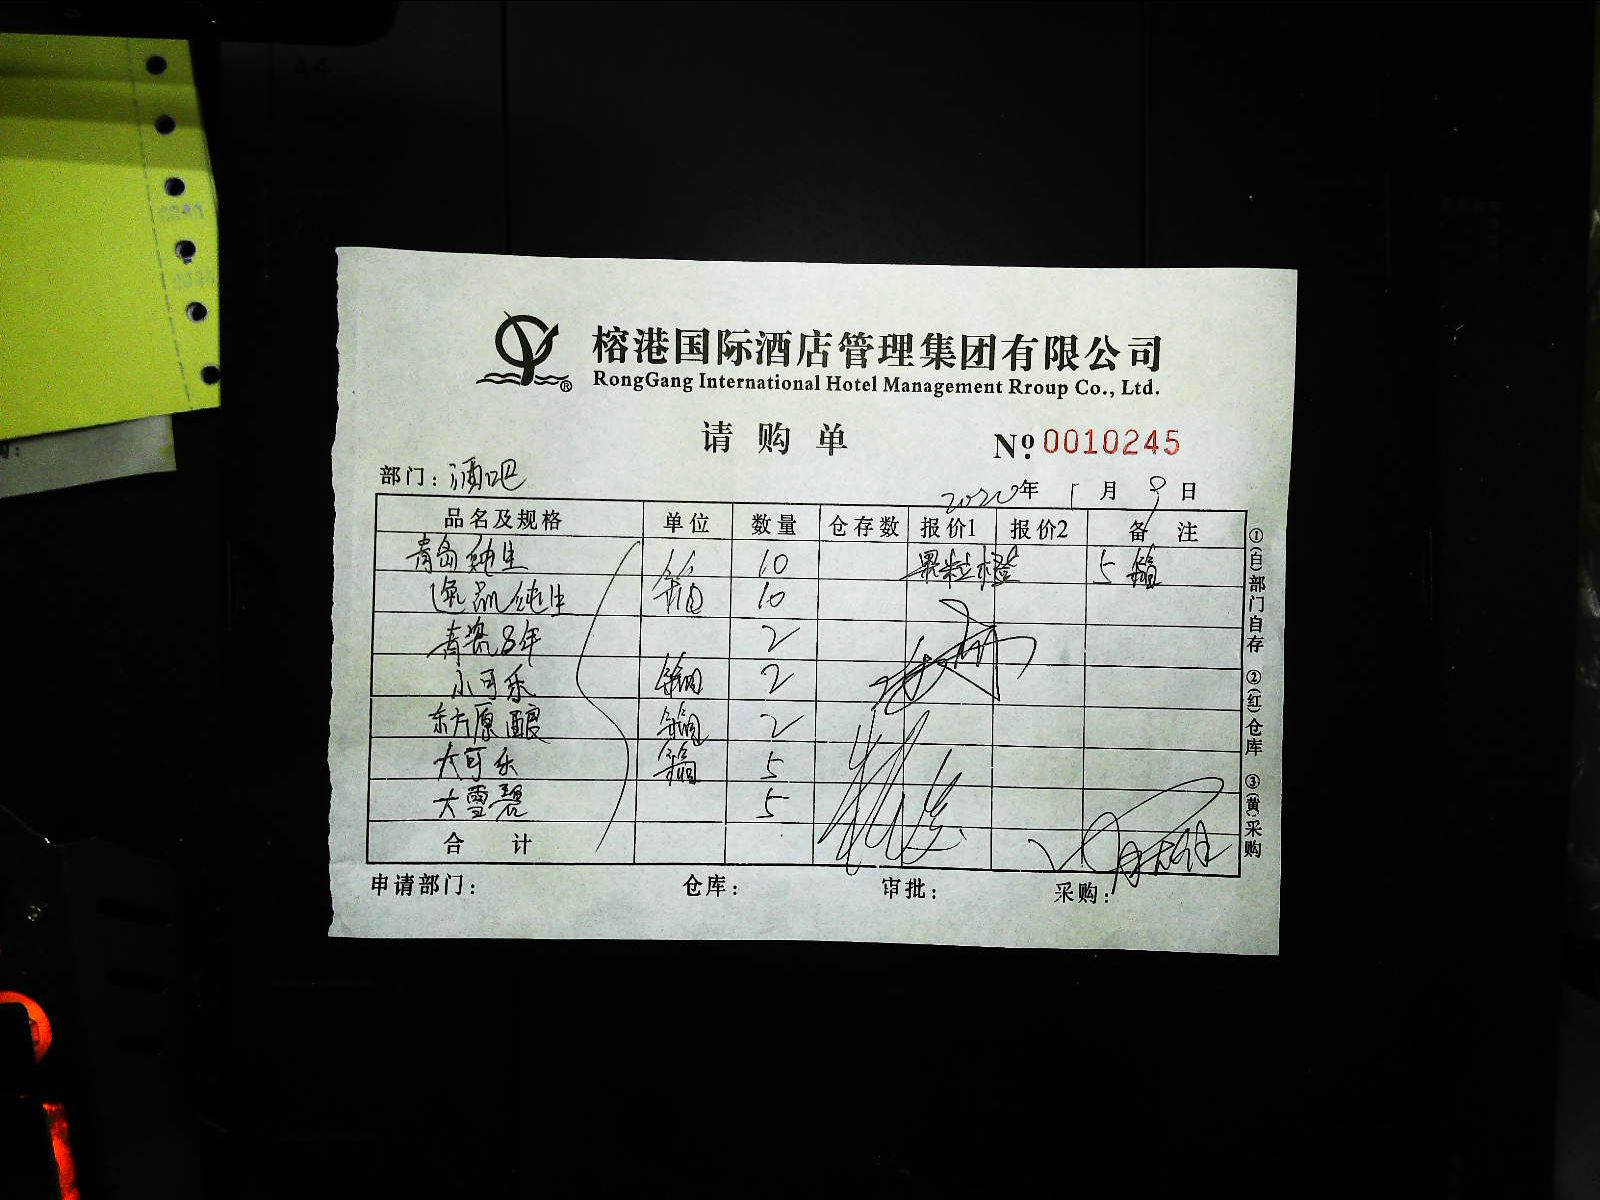 榕港国际酒店管理集团有限公司
RongGang International Hotel Management Rroup Co., Ltd.
请购单 Nº 0010245
部门：酒吧
2020年 1月 9日
品名及规格 单位 数量 仓存数 报价1 报价2 备注
青岛纯生 10 果粒橙 5箱
逸品纯生 箱 10
青瓷8年 2
小可乐 2
东方原酿 2
大可乐 箱 5
大雪碧 5
合计
申请部门： 仓库： 审批： 采购：
①(白)部门自存 ②(红)仓库 ③(黄)采购
A4